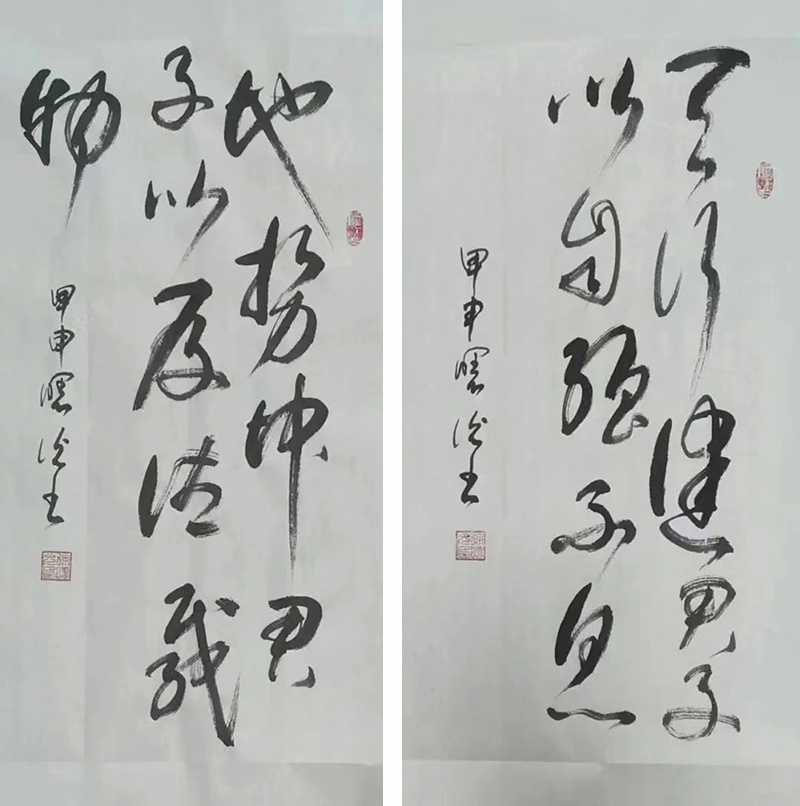 天行健君子
以自强不息
甲申
地势坤君
子以厚德载
物
甲申